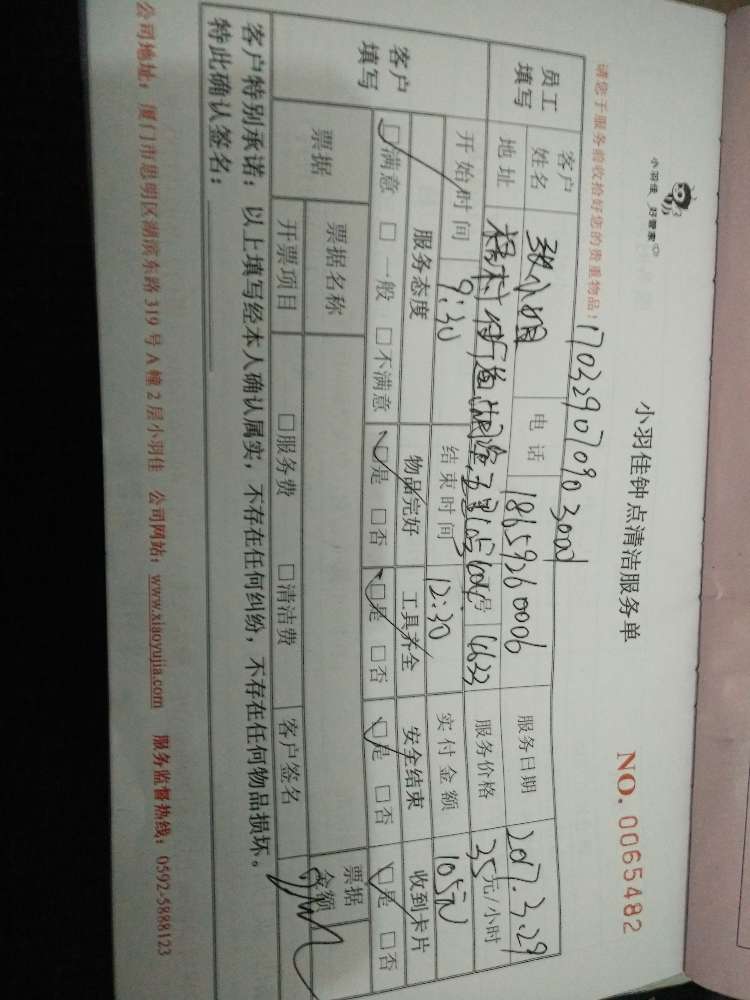 小羽佳 好管家
小羽佳钟点清洁服务单
NO. 0065482
请您于服务前收拾好您的贵重物品!
17032907090300d
员工填写
客户姓名
张小姐
电话
18659260006
服务日期
2017.3.29
地址
号
4633
服务价格
35元/小时
开始时间
9:30
结束时间
12:30
实付金额
105元
客户填写
服务态度
物品完好
工具齐全
安全结束
收到卡片
□满意 □一般 □不满意
□是 □否
□是 □否
□是 □否
□是 □否
票据
票据名称
票据金额
开票项目
□服务费 □清洁费
客户签名
客户特别承诺：以上填写经本人确认属实，不存在任何纠纷，不存在任何物品损坏。
特此确认签名：
公司地址：厦门市思明区湖滨东路319号A幢2层小羽佳 公司网站：www.xiaoyujia.com 服务监督热线：0592-5888123